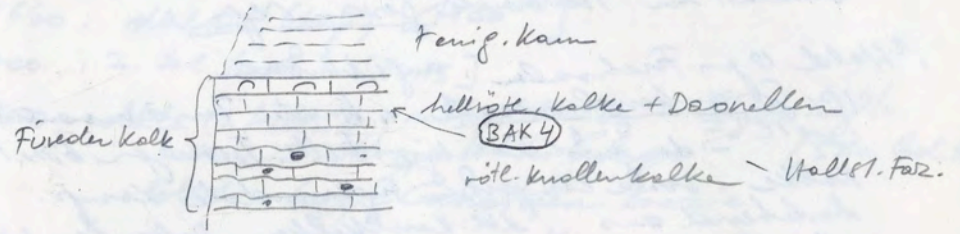 Karn
hellrötl. Kalke + Daonellen
BAK 4
Füreder Kalk
rötl. Knollenkalke ~ Hallst. Faz.